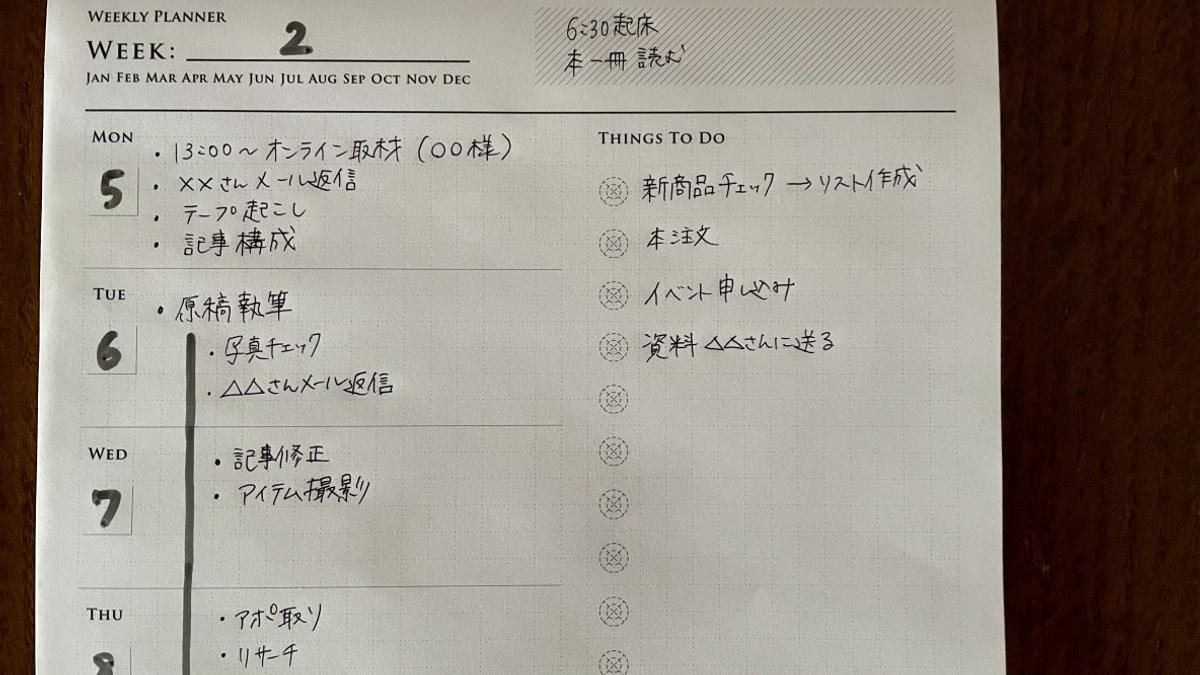 WEEKLY PLANNER
WEEK: 2
JAN FEB MAR APR MAY JUN JUL AUG SEP OCT NOV DEC
6:30起床
本一冊 読む
MON
5
・13:00〜オンライン取材(〇〇様)
・××さんメール返信
・テープ起こし
・記事構成
TUE
6
・原稿執筆
・写真チェック
・△△さんメール返信
WED
7
・記事修正
・アイテム撮影
THU
8
・アポ取り
・リサーチ
THINGS TO DO
新商品チェック→リスト作成
本注文
イベント申し込み
資料 △△さんに送る